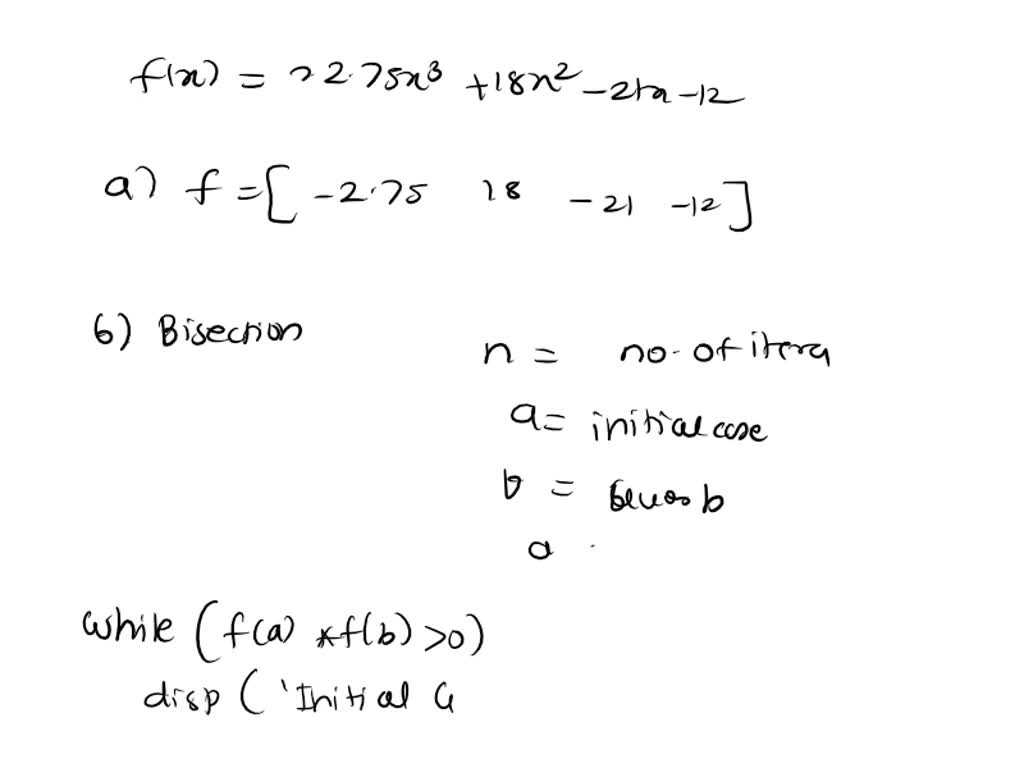 f(x) = -2.75x³ +18x² -21x -12
a) f = [ -2.75 18 -21 -12 ]
b) Bisection
n = no. of itera
a = initial case
b = b
a
while (f(a) *f(b) >0)
disp ( 'Initial G